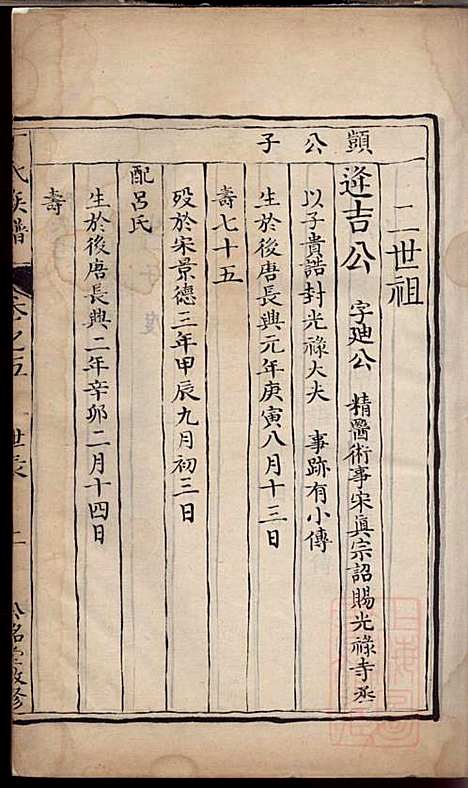 二世祖
顗公子
逄吉公　字廸公　精醫術事宋眞宗詔賜光祿寺丞
以子貴誥封光祿大夫　事跡有小傳
生於後唐長興元年庚寅八月十三日
壽七十五
歿於宋景德三年甲辰九月初三日
配呂氏
生於後唐長興二年辛卯二月十四日
壽
氏族譜
卷之五
世表